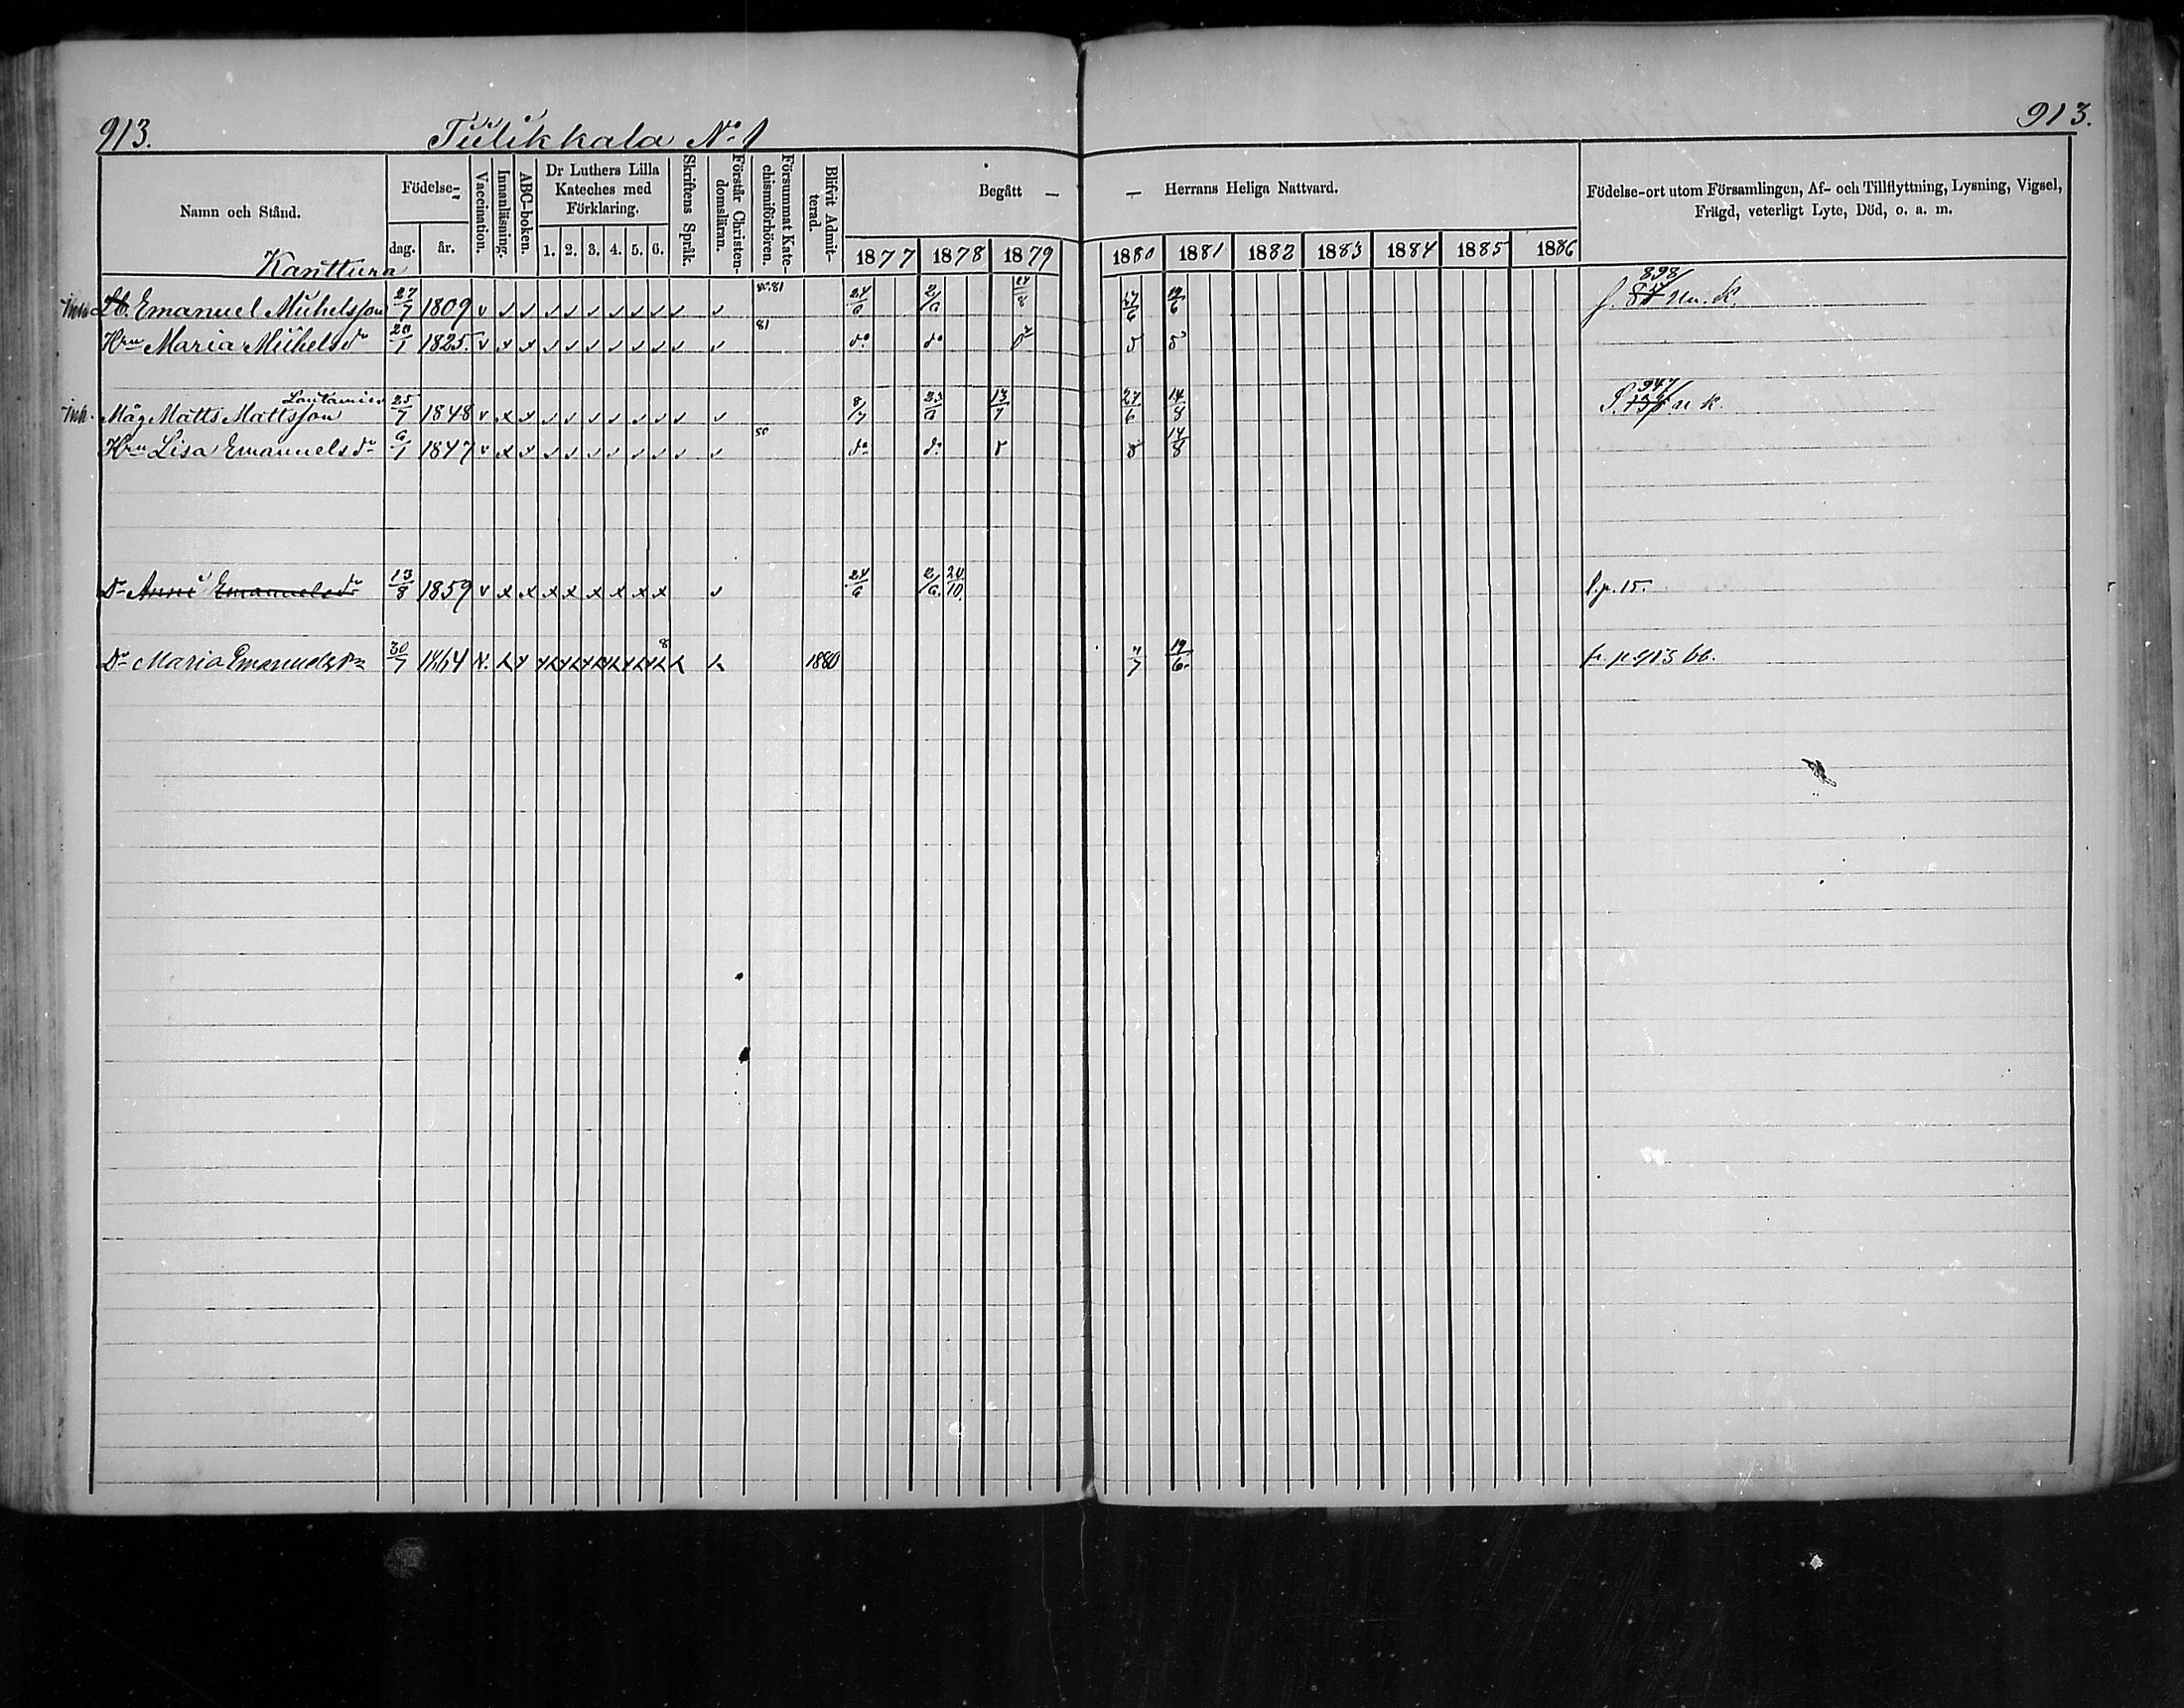 913. Tulikkala No 1 913.
Namn och Stånd. Födelse- dag. år. Vaccination. Innanläsning. ABC-boken. Dr Luthers Lilla Kateches med Förklaring. 1. 2. 3. 4. 5. 6. Skriftens Språk. Förstår Christendomsläran. Försummat Katechismiförhören. Blifvit Admitterad. Begått — — Herrans Heliga Nattvard. Födelse-ort utom Församlingen, Af- och Tillflyttning, Lysning, Vigsel, Frägd, veterligt Lyte, Död, o. a. m.
1877 1878 1879 1880 1881 1882 1883 1884 1885 1886
Kanttura
Emanuel Michelsson 27/7 1809 v 80.81 24/6 2/6 24/8 27/6 19/6 898
Hru Maria Michelsdr 1825. v 81 do do
Lautamies
Inh. Måg Matts Mattsson 25/7 1848 v 8/7 23/6 13/7 27/6 14/8 947
Hru Lisa Emanuelsdr 6/1 1847 v 80 do do 14/8
Dr Anni Emanuelsdr 13/8 1859 v x x x x x x x x 24/6 2/6 20/10 l.p. 15.
8
Dr Maria Emanuelsdr 30/7 1864 1880 4/7 19/6 fr. p. 913 bb.